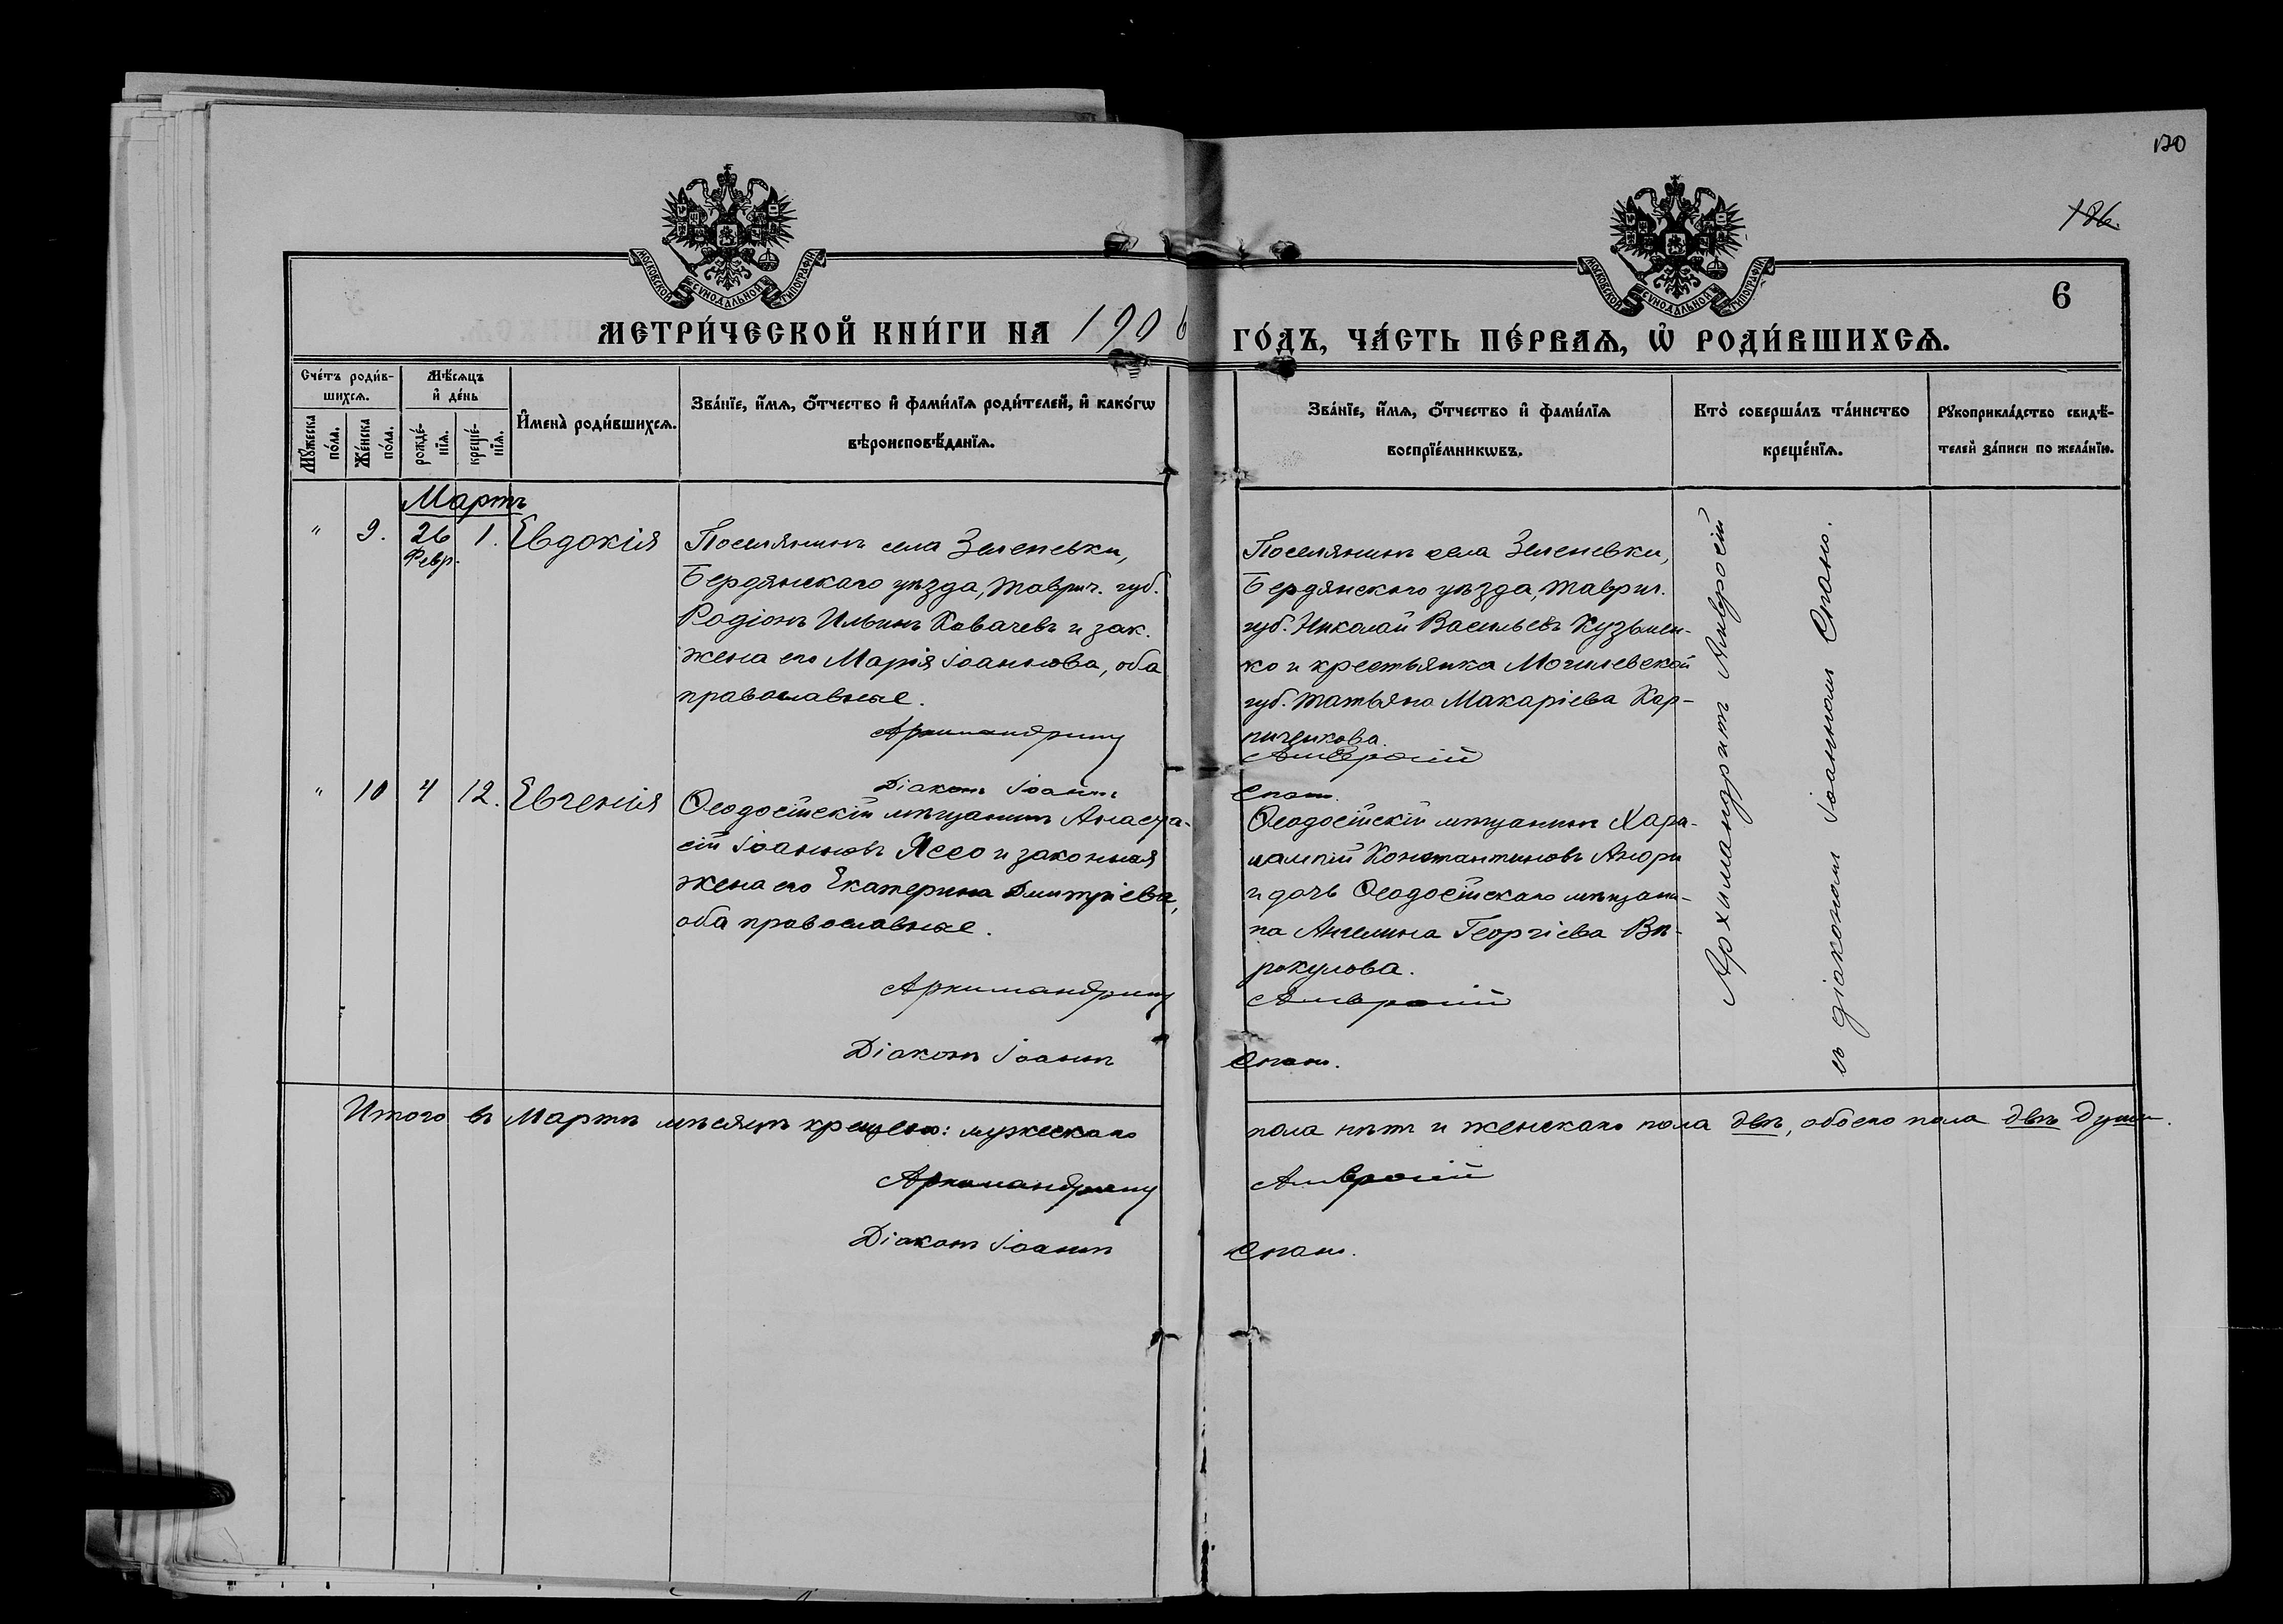 170
186.
6
МОСКОВСКОЙ СУНОДАЛЬНОЙ ТИПОГРАФІИ
МОСКОВСКОЙ СУНОДАЛЬНОЙ ТИПОГРАФІИ
МЕТРИ́ЧЕСКОЙ КНИ́ГИ НА 1906
ГО́ДЪ, ЧА́СТЬ ПЕ́РВАѦ, Ѡ҆ РОДИ́ВШИХСѦ.
Сче́тъ роди́в-
шихсѧ.
Мꙋ́жеска по́ла.
Же́нска по́ла.
Мѣ́сѧцъ
и҆ де́нь
рожде́-
нїѧ.
креще́-
нїѧ.
И҆мена̀ роди́вшихсѧ.
Зва́нїе, и҆́мѧ, ѻ҆́тчество и҆ фами́лїѧ роди́телей, и҆ како́гѡ
вѣроисповѣ́данїѧ.
Зва́нїе, и҆́мѧ, ѻ҆́тчество и҆ фами́лїѧ
воспрїе́мникѡвъ.
Кто̀ соверша́лъ та́инство
креще́нїѧ.
Рꙋкоприкла́дство свидѣ́-
телей за́писи по жела́нїю.
Мартъ
" 9. 26 Февр. 1. Евдокія
Поселянинъ села Зеленевки,
Бердянскаго уѣзда, Таврич. губ.
Родіонъ Ильинъ Ковачевъ и зак.
жена его Марія Іоаннова, оба
православные.
Архимандритъ
Діаконъ Іоаннъ
Поселянинъ села Зеленевки,
Бердянскаго уѣзда, Таврич.
губ. Николай Васильевъ Кузьмен-
ко и крестьянка Могилевской
губ. Татьяна Макаріева Кар-
пиченкова.
Амвросій
Спано.
" 10 4 12. Евгенія
Ѳеодосійскій мѣщанинъ Анаста-
сій Іоанновъ Яссо и законная
жена его Екатерина Дмитріева,
оба православные.
Архимандритъ
Діаконъ Іоаннъ
Ѳеодосійскій мѣщанинъ Хара-
лампій Константиновъ Анори
и дочь Ѳеодосійскаго мѣщани-
на Ангелина Георгіева Ви-
рокулова.
Амвросій
Спано.
Архимандритъ Амвросій
съ діакономъ Іоанномъ Спано.
Итого въ Мартѣ мѣсяцѣ крещено: мужескаго
пола нѣтъ и женскаго пола двѣ, обоего пола двѣ души.
Архимандритъ
Амвросій
Діаконъ Іоаннъ
Спано.